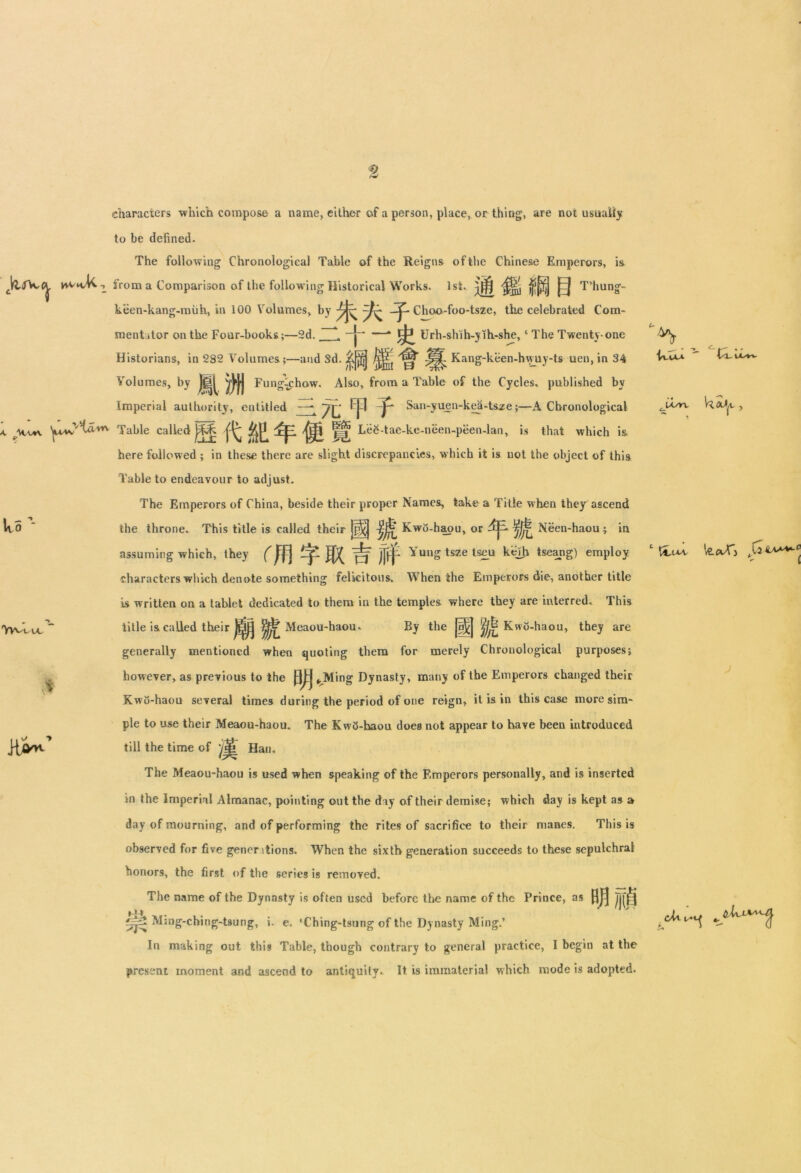 2
characters which compose a name, either of a person, place, or thing, are not usually
to be defined.
The following Chronological Table of the Reigns of the Chinese Emperors, is
from a Comparison of the following Historical Works. 1st. 通鑑綱目 T'hung-
këen-kang-müh, in 100 Volumes, by 朱夫子 Choo-foo-tsze, the celebrated Com-
mentator on the Four-books;—2d. 二十一史 Urh-shïh-yïh-she, ‘The Twenty-one
Historians, in 282 Volumes;—and 3d. 綱鑑會纂 Kang-këen-hwuy-ts uen, in 34
Volumes, by 鳳洲 Fung-chow. Also, from a Table of the Cycles, published by
Imperial authority, entitled 三元甲子 San-yuen-keä-tsze;—A Chronological
Table called 歷代紀年便覽 Leĕ-tae-ke-nëen-pëen-lan, is that which is
here followed; in these there are slight discrepancies, which it is not the object of this
Table to endeavour to adjust.
The Emperors of China, beside their proper Names, take a Title when they ascend
the throne. This title is called their 國號 Kwŏ-haou, or 年號 Nëen-haou; in
assuming which, they (用字取吉祥 Yung tsze tseu keïh tseang) employ
characters which denote something felicitous. When the Emperors die, another title
is written on a tablet dedicated to them in the temples where they are interred. This
title is called their 廟號 Meaou-haou. By the 國號 Kwŏ-haou, they are
generally mentioned when quoting them for merely Chronological purposes;
however, as previous to the 明 Ming Dynasty, many of the Emperors changed their
Kwŏ-haou several times during the period of one reign, it is in this case more sim-
ple to use their Meaou-haou. The Kwŏ-haou does not appear to have been introduced
till the time of 漢 Han.
The Meaou-haou is used when speaking of the Emperors personally, and is inserted
in the Imperial Almanac, pointing out the day of their demise; which day is kept as a
day of mourning, and of performing the rites of sacrifice to their manes. This is
observed for five generations. When the sixth generation succeeds to these sepulchral
honors, the first of the series is removed.
The name of the Dynasty is often used before the name of the Prince, as 明禎
崇 Ming-ching-tsung, i. e. ‘Ching-tsung of the Dynasty Ming.’
In making out this Table, though contrary to general practice, I begin at the
present moment and ascend to antiquity. It is immaterial which mode is adopted.